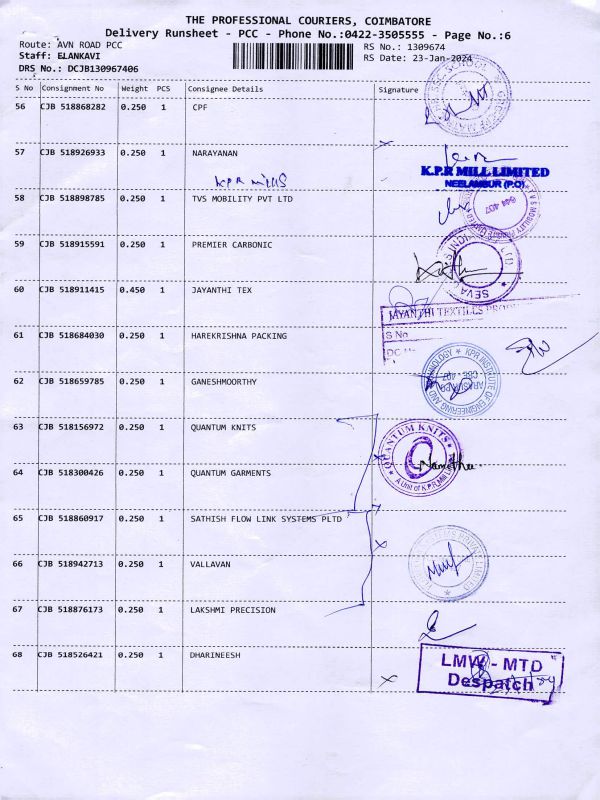 THE PROFESSIONAL COURIERS, COIMBATORE
Delivery Runsheet - PCC - Phone No.:0422-3505555 - Page No.:6
Route: AVN ROAD PCC
RS No.: 1309674
Staff: ELANKAVI
RS Date: 23-Jan-2024
DRS No.: DCJB130967406
S No Consignment No Weight PCS Consignee Details Signature
56 CJB 518868282 0.250 1 CPF
57 CJB 518926933 0.250 1 NARAYANAN
K.P.R MILL LIMITED
KPR mills
NEELAMBUR (P.O)
58 CJB 518898785 0.250 1 TVS MOBILITY PVT LTD
59 CJB 518915591 0.250 1 PREMIER CARBONIC
60 CJB 518911415 0.450 1 JAYANTHI TEX
JAYANTHI TEXTILES
S No
61 CJB 518684030 0.250 1 HAREKRISHNA PACKING
62 CJB 518659785 0.250 1 GANESHMOORTHY
KPR INSTITUTE OF ENGINEERING AND TECHNOLOGY
63 CJB 518156972 0.250 1 QUANTUM KNITS
QUANTUM KNITS
64 CJB 518300426 0.250 1 QUANTUM GARMENTS
A Unit of K.P.R.Mill
65 CJB 518860917 0.250 1 SATHISH FLOW LINK SYSTEMS PLTD
66 CJB 518942713 0.250 1 VALLAVAN
67 CJB 518876173 0.250 1 LAKSHMI PRECISION
68 CJB 518526421 0.250 1 DHARINEESH
LMW - MTD
Despatch